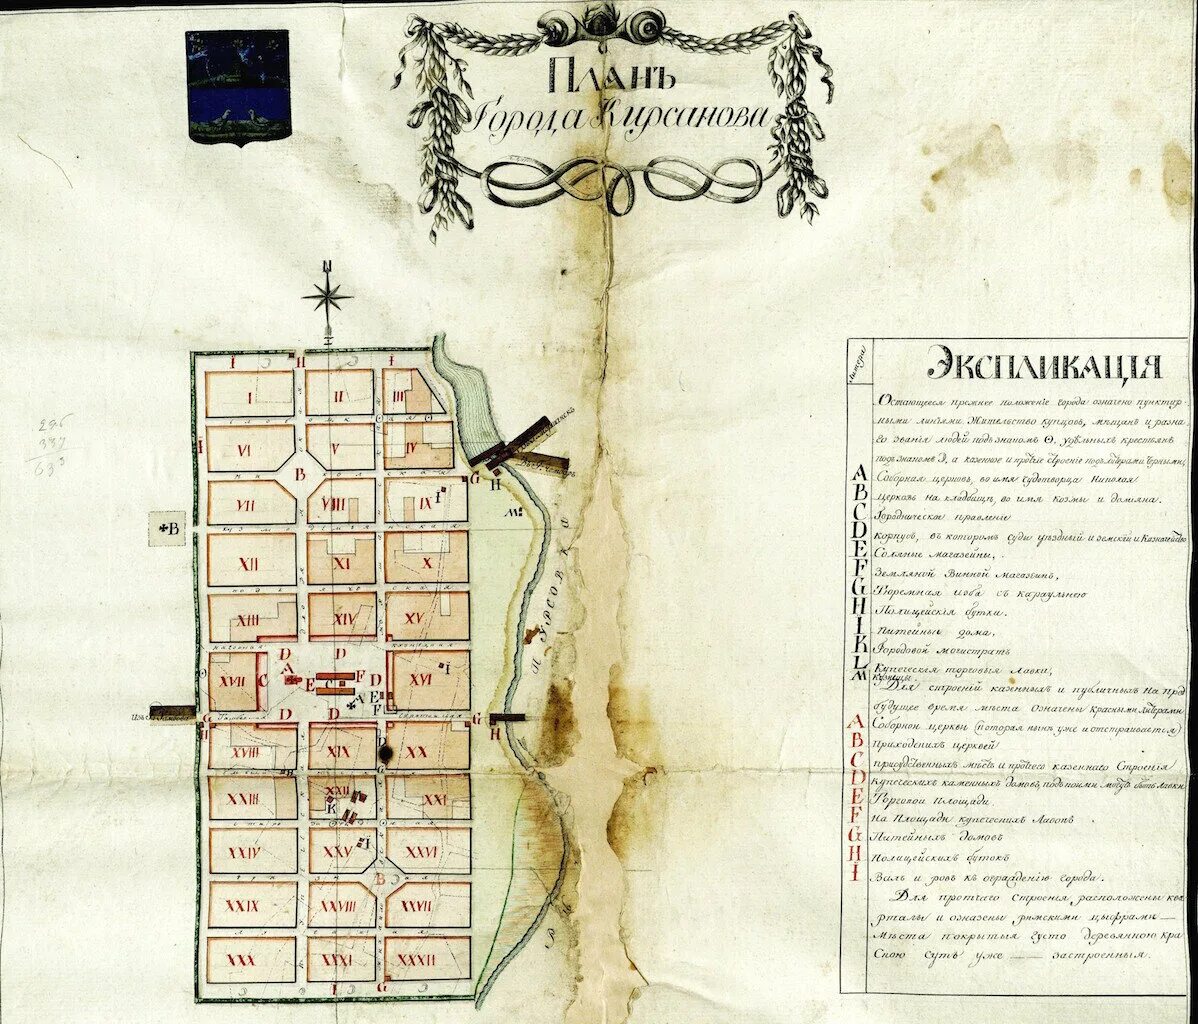 Планъ
Города Кирсанова
Литера
Экспликацıя
Остающееся прежнее положенıе города означено пунктир-
ными линıями Жительство купцовъ, мещанъ и разна-
го званıя людей подъ знакомъ Θ. удельныхъ крестьянъ
подъ знакомъ Э, а казенное и протчее строенıе подъ литерами черными;
A Соборная церковь, во имя чудотворца Николая
B Церковь на кладбище, во имя Козмы и Домıяна.
C Городническое правленıе
D Корпусъ, въ которомъ суды уездный и земскıй и Казначейство
E Соляные магазейны,
F Земляной Винной магазеинъ,
G Тюремная изба съ караульнею
H Полицейскıя будки.
I Питейные дома,
K Городовой магистратъ
L Купеческıя торговыя лавки,
M Кузницы.
Для строенıй казенныхъ и публичныхъ на пред
будущее время места означены красными литерами
A Соборной церквы (которая ныне уже и отстраивается)
B Приходскихъ церквей
C присудственныхъ местъ и протчего казеннаго Строенıя
D купеческихъ каменныхъ домовъ, подъ коими могутъ быть лавки
E Торговой площади.
F На Площади купеческихъ Лавокъ.
G Питейныхъ домовъ
H Полицейскихъ будокъ
I Валъ и ровъ къ огражденıю города.
Для протчаго Строенıя, расположены ква
рталы и означены римскими цыфрами
Места покрытыя густо деревянною кра
скою суть уже застроенныя.
I II III
VI V IV
VII VIII IX
XII XI X
XIII XIV XV
XVII XVI
XVIII XIX XX
XXIII XXII XXI
XXIV XXV XXVI
XXIX XXVIII XXVII
XXX XXXI XXXII
П УРСОВКА